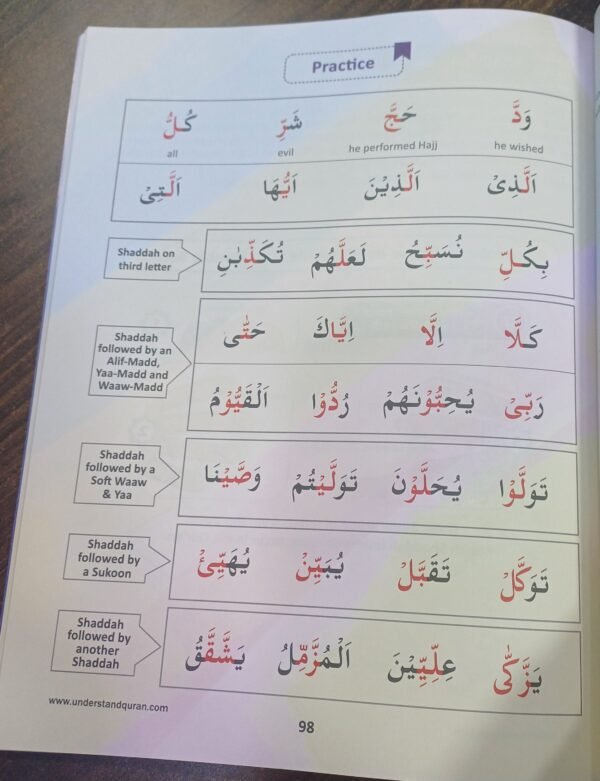 Practice
وَدَّ حَجَّ شَرِّ كُلُّ
he wished he performed Hajj evil all
اَلَّذِیْ اَلَّذِیْنَ اَیُّهَا اَلَّتِیْ
Shaddah on
third letter
بِکُلِّ نُسَبِّحُ لَعَلَّهُمْ تُکَذِّبٰنِ
Shaddah
followed by an
Alif-Madd,
Yaa-Madd and
Waaw-Madd
کَلَّا اِلَّا اِیَّاكَ حَتّٰی
رَبِّیْ یُحِبُّوْنَهُمْ رُدُّوْا اَلْقَیُّوْمُ
Shaddah
followed by a
Soft Waaw
& Yaa
تَوَلَّوْا یُحَلَّوْنَ تَوَلَّیْتُمْ وَصَّیْنَا
Shaddah
followed by
a Sukoon
تَوَکَّلْ تَقَبَّلْ یُبَیِّنْ یُهَیِّئْ
Shaddah
followed by
another
Shaddah
یَزَّکّٰی عِلِّیِّیْنَ اَلْمُزَّمِّلُ یَشَّقَّقُ
www.understandquran.com
98